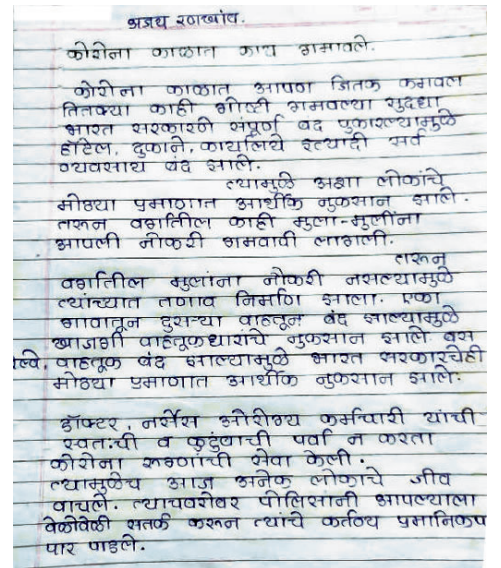 अजय रणखांब.
कोरोना काळात काय गमावले.
कोरोना काळात आपण जितक कमावल
तितक्या काही गोष्टी गमवल्या सुद्धा
भारत सरकारणी संपूर्ण बंद पुकारल्यामुळे
हॉटेल, दुकाने, कार्यालये इत्यादी सर्व
व्यवसाय बंद झाले.
त्यामुळे अशा लोकांचे
मोठया प्रमाणात आर्थीक नुकसान झाले.
तरुन वर्गातील काही मुला-मुलींना
आपली नौकरी गमवावी लागली.
तरुन
वर्गातील मुलांना नौकरी नसल्यामुळे
त्यांच्यात तणाव निर्माण झाला. एका
गावातून दुसऱ्या वाहतून बंद झाल्यामुळे
खाजगी वाहतुकधारांचे नुकसान झाले. बस
ल्वे, वाहतूक बंद झाल्यामुळे भारत सरकारचेही
मोठया प्रमाणात आर्थीक नुकसान झाले.
डॉक्टर, नर्सेस ओरोग्य कर्मचारी यांची
स्वतःची व कुटुंबाची पर्वा न करता
कोरोना रुग्णांची सेवा केली.
त्यामुळेच आज अनेक लोकांचे जीव
वाचले. त्याचबरोबर पोलिसांनी आपल्याला
वेळोवेळी सतर्क करून त्यांचे कर्तव्य प्रमानिकप
पार पाडले.